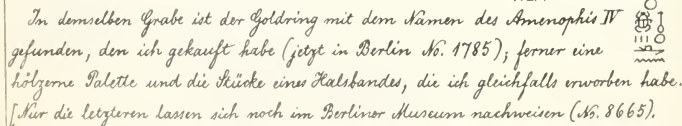 In demselben Grabe ist der Goldring mit dem Namen des Amenophis IV
gefunden, den ich gekauft habe (jetzt in Berlin No. 1785); ferner eine
hölzerne Palette und die Stücke eines Halsbandes, die ich gleichfalls erworben habe.
[Nur die letzteren lassen sich noch im Berliner Museum nachweisen (No. 8665).